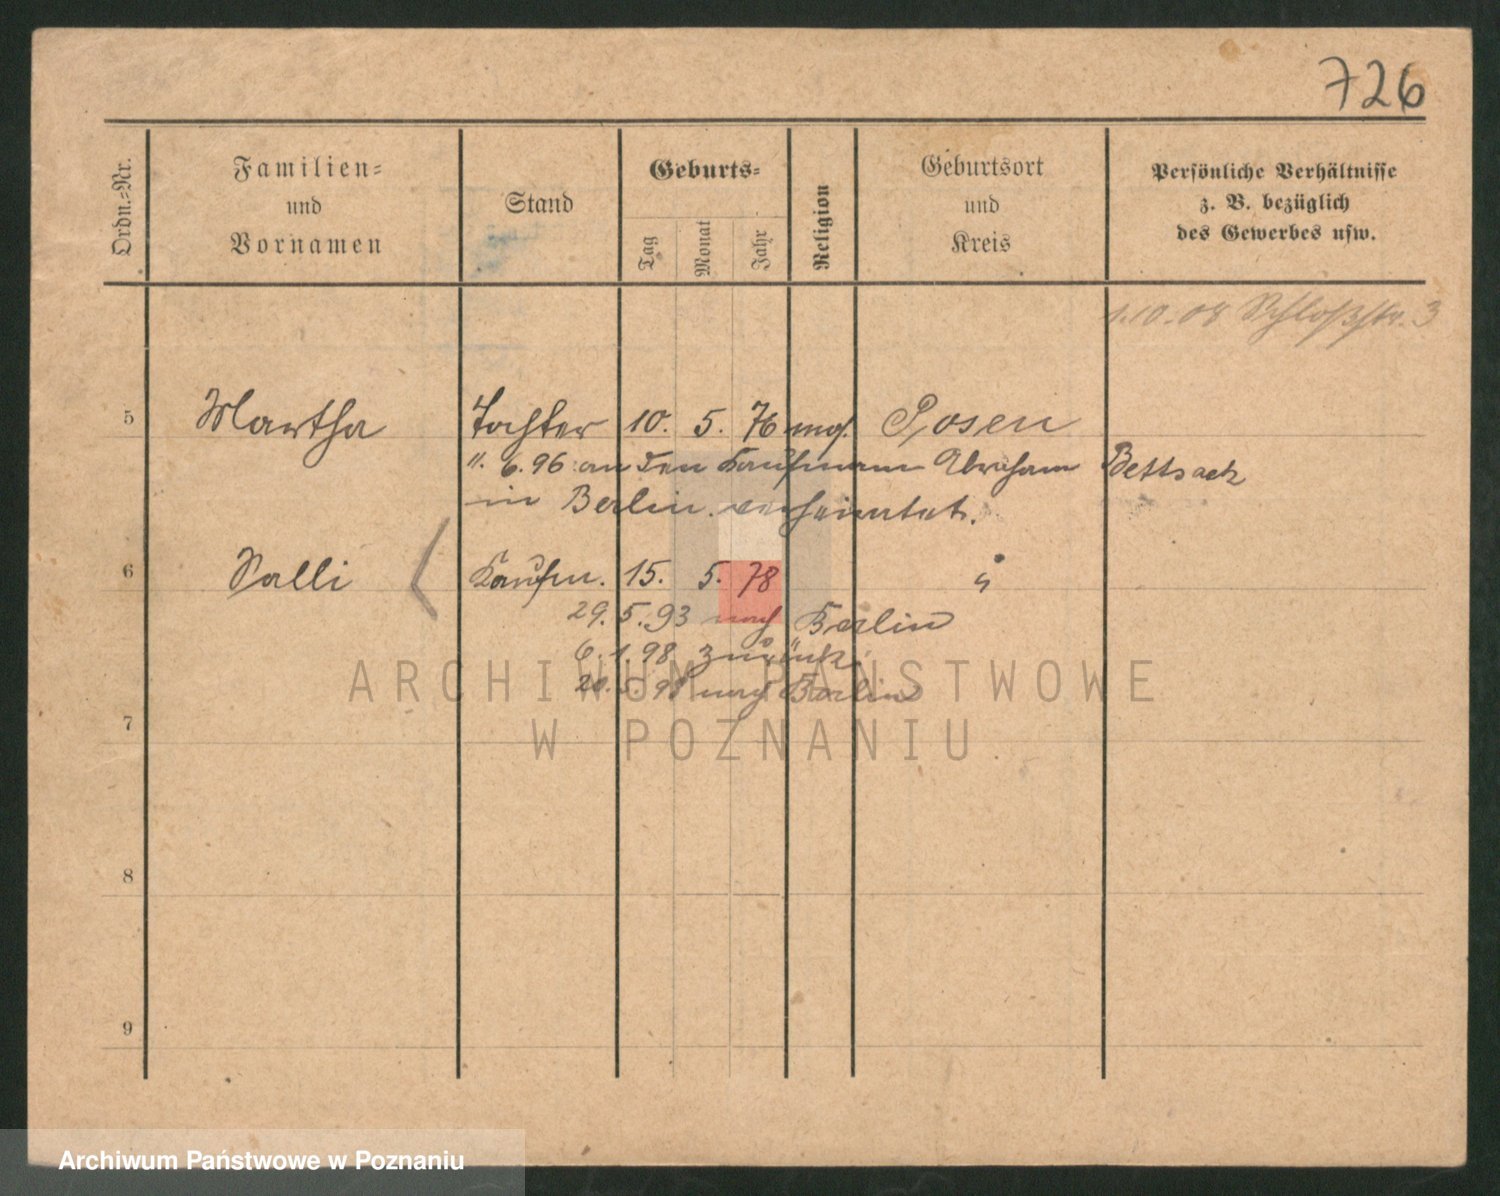 726
Ordn.-Nr.
Familien-
und
Vornamen
Stand
Geburts-
Tag
Monat
Jahr
Religion
Geburtsort
und
Kreis
Persönliche Verhältnisse
z. B. bezüglich
des Gewerbes usw.
1.10.08 Schloßstr. 3
5 Martha Tochter 10. 5. 76 mos. Posen
11. 6. 96 an den Kaufmann Abraham Bettsack
in Berlin verheiratet.
6 Salli Kaufm. 15. 5. 78 "
29. 5. 93 nach Berlin
6. 1. 98 zurück.
20. 5. 98 nach Berlin
ARCHIWUM PAŃSTWOWE
W POZNANIU
7
8
9
Archiwum Państwowe w Poznaniu